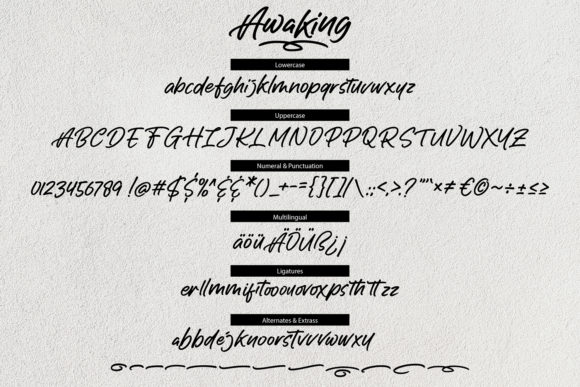 Awaking
Lowercase
abcdefghijklmnopqrstuvwxyz
Uppercase
ABCDEFGHIJKLMNOPPQRSTUVWXYZ
Numeral & Punctuation
0123456789 !@#$%^&*()_+-={}[]|\:;<,>.?""×≠€©~÷±≤≥
Multilingual
äöüÄÖÜß¿¡
Ligatures
erllmmifitooouovoxpsthttzz
Alternates & Extrass
abbdejknoorstuvwwxy